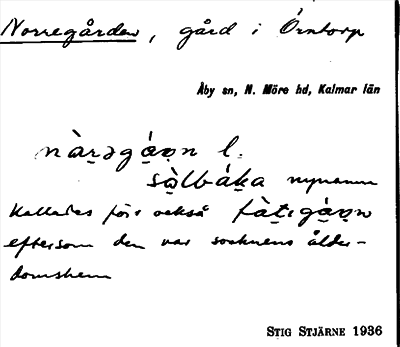 Norregården, gård i Örntorp
Åby sn, N. Möre hd, Kalmar län
nàrəgá̱ɷn l.
sɷ̀lbáka nynamn
kallades förr också fàtɩgá̱ɷn
eftersom den var socknens ålder-
domshem
STIG STJÄRNE 1936